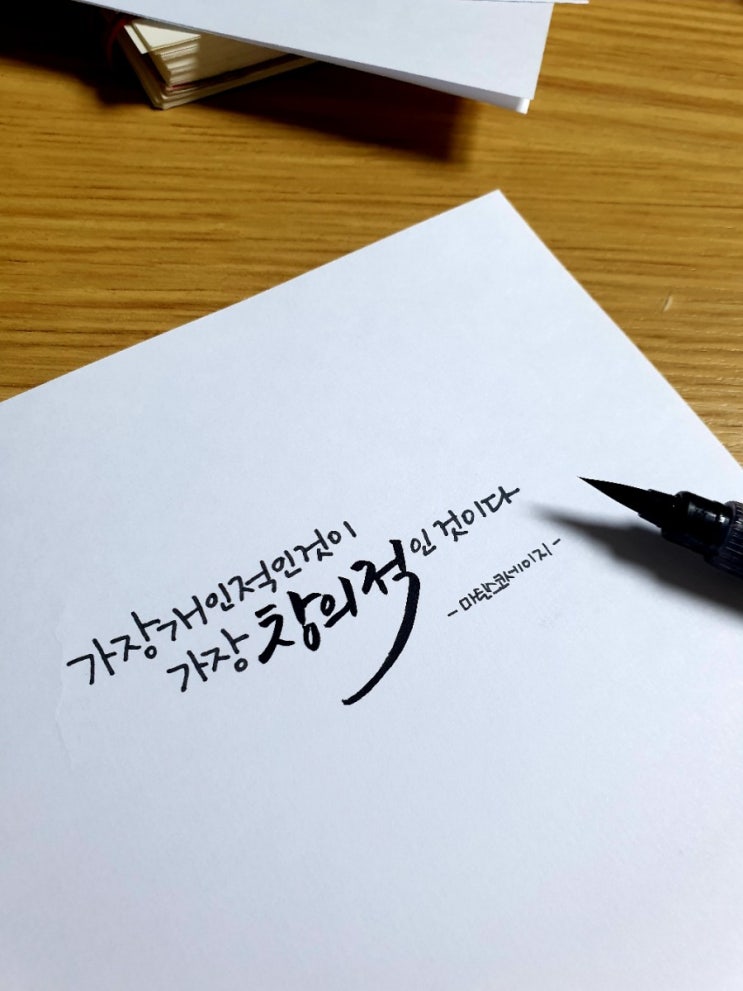 가장 개인적인 것이
가장 창의적인 것이다
- 마틴스코세이지 -